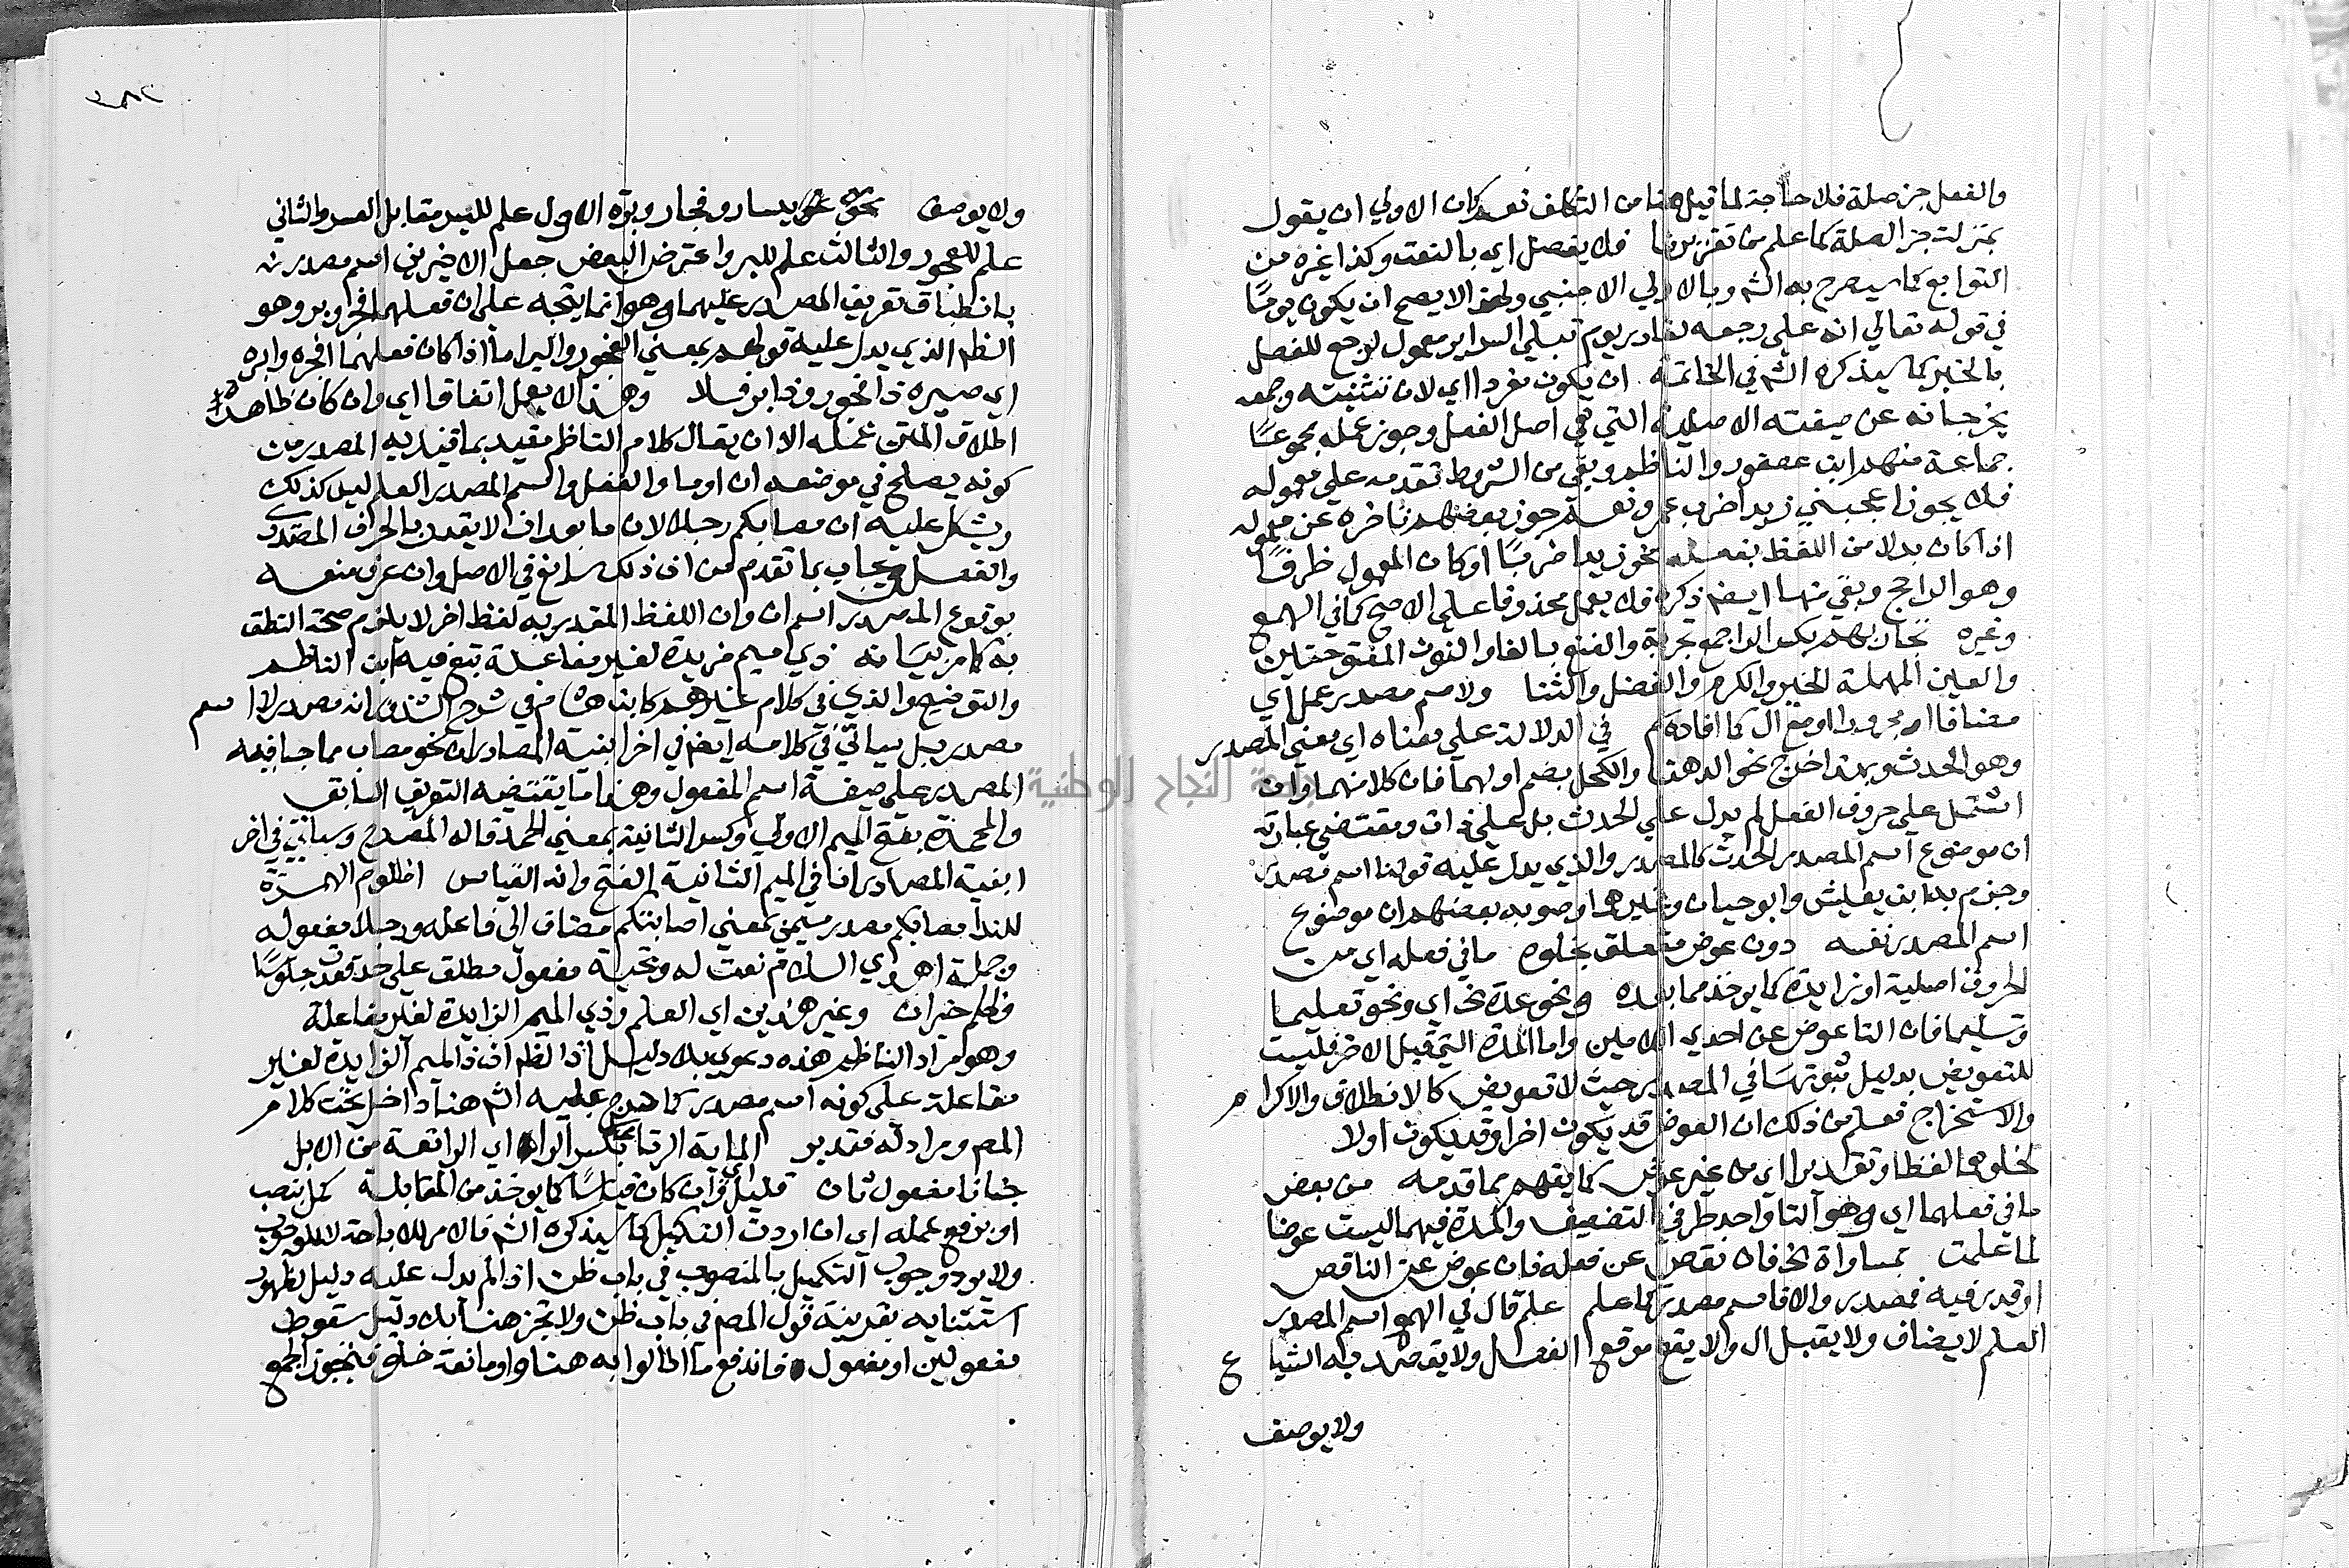 والفعل جز صلة فلا حاجة لما قيل هنا من التكلف نعم كان الاولي ان يقول
بمنزلة جز الصلة كما علم من تقريرنا فلا يفصل اي بالنعت وكذا غيره من
التوابع كما سيصرح به الش وبالاولي الاجنبي ولهذا لا يصح ان يكون يوما
في قوله تعالي انه علي رجعه لقادر يوم تبلي السراير معمول لرجع للفصل
بالخبر كما سيذكره الش في الخاتمة ان يكون مفردا اي لان تثنيته وجمعه
يخرجانه عن صيغته الاصلية التي هي اصل الفعل وجوز عمله مجموعا
جماعة منهم ابن عصفور والناظم وبقي من الشروط تقدمه علي معموله
فلا يجوز اعجبني زيدا ضرب عمرو نعم جوز بعضهم تاخره عن معموله
اذا كان بدلا من اللفظ بفعله نحو زيدا ضربا او كان المعمول ظرفا
وهو الراجح وبقي منها ايضا ذكره فلا يعمل محذوفا علي الاصح كما في الهمع
وغيره تجاربهم بكسر الراء جمع تجربة والفنع بالفا والنون المفتوحتين
والعين المهملة الخير والكرم والفضل والثنا ولاسم مصدر عمل اي
مضافا او مجردا او مع ال كما افاده م في الدلالة علي معناه اي معني المصدر
وهو الحدث وبهذا خرج نحو الدهن والكحل بضم اولهما فان كلا منهما وان
اشتمل علي حروف الفعل لم يدل علي الحدث بل علي ذات ومقتضي عبارته
ان موضوع اسم المصدر الحدث كالمصدر والذي يدل عليه قولنا اسم مصدر
وجزم به ابن يعيش وابو حيان وغيرهما وصوبه بعضهم ان موضوع
اسم المصدر نفسه دون عوض متعلق بخلوه ما في فعله اي من
الحروف اصلية او زايدة كما يوخذ مما بعده ونحو عدة نح اي ونحو تعليما
وتسليما فان التا عوض عن احدي اللامين واما المدة التي قبل الاخر فليست
للتعويض بدليل ثبوتها في المصدر حيث لا تعويض كالانطلاق والاكرام
والاستخراج فعلم من ذلك ان العوض قد يكون اخرا وقد يكون اولا
لخلوهما لفظا وتقديرا اي من غير عوض كما يفهم مما قدمه من بعض
ما في فعلهما اي وهو التا واحد طرفي التضعيف والمدة فيهما ليست عوضا
لما علمت بمساواة نح فان نقص عن فعله فان عوض عن الناقص
او قدر فيه فمصدر والا فاسم مصدر كما علم علم قال في الهمع اسم المصدر
العلم لا يضاف ولا يقبل ال ولا يقع موقع الفعل ولا يقصد به الشياع
ولا يوصف
ولا يوصف نحو يسار وفجار وبرة الاول علم لليسر مقابل العسر والثاني
علم للفجور والثالث علم للبر واعترض البعض جعل الاخيرين اسم مصدر
بانطباق تعريف المصدر عليهما وهو انما يتجه علي ان فعلهما فجر وبر وهو
الظم الذي يدل عليه قولهم بمعني الفجور والبر اما اذا كان فعلهما افجره وابره
اي صيره ذا فجور وذا بر فلا وهذا لا يعمل اتفاقا اي وان كان ظاهر
اطلاق المتن عمله الا ان يقال كلام الناظم مقيد بما قيد به المصدر من
كونه يصلح في موضعه ان او ما والفعل واسم المصدر العلم ليس كذلك
ويشكل عليه ان مصابكم رجلا لان ما بعد ان لا يقدر بالحرف المصدري
والفعل ويجاب بما تقدم من ان ذلك سايغ في الاصل وان عرض منعه
بوقوع المصدر اسم ان وان اللفظ المقدر به لفظ اخر لا يلزم صحة النطق
به كما مر بيانه ذي ميم مزيدة لغير مفاعلة تبع فيه ابن الناظم
والتوضيح والذي في كلام غيرهم كابن هشام في شرح الشذور انه مصدر لا اسم
مصدر بل سياتي في كلامه ايضا في اخر ابنية المصادر ان نحو مصاب مما جا فيه
المصدر علي صيغة اسم المفعول وهذا ما يقتضيه التعريف السابق
والمحمدة بفتح الميم الاولي وكسر الثانية بمعني الحمد قاله المصرح وسياتي في اخر
ابنية المصادر ان في الميم الثانية الفتح وانه القياس اظلوم الهمزة
للندا مصابكم مصدر ميمي بمعني اصابتكم مضاف الي فاعله ورجلا مفعوله
وجملة اهدي السلام نعت له وتحية مفعول مطلق علي حد قعدت جلوسا
وظلم خبر ان وغير هذين اي العلم وذي الميم الزايدة لغير مفاعلة
وهو مراد الناظم هذه دعوي بلا دليل اذ الظم ان ذا الميم الزايدة لغير
مفاعلة علي كونه اسم مصدر كما درج عليه الش هنا داخل تحت كلام
المص ومراد له فتدبر الماية الرتاعا بكسر الرا اي الراتعة من الابل
جنانا مفعول ثان قليل وان كان قياسا كما يوخذ من المقابلة كمل بنصب
او برفع عمله اي ان اردت التكميل كما سيذكره الش فالامر للاباحة لا للوجوب
ولا يرد وجوب التكميل بالمنصوب في باب ظن اذا لم يدل عليه دليل لظهور
استثنايه بقرينة قول المص في باب ظن ولا تجز هنا بلا دليل سقوط
مفعولين او مفعول فاندفع ما اطالوا به هنا واو مانعة خلو فتجوز الجمع
جامعة النجاح الوطنية